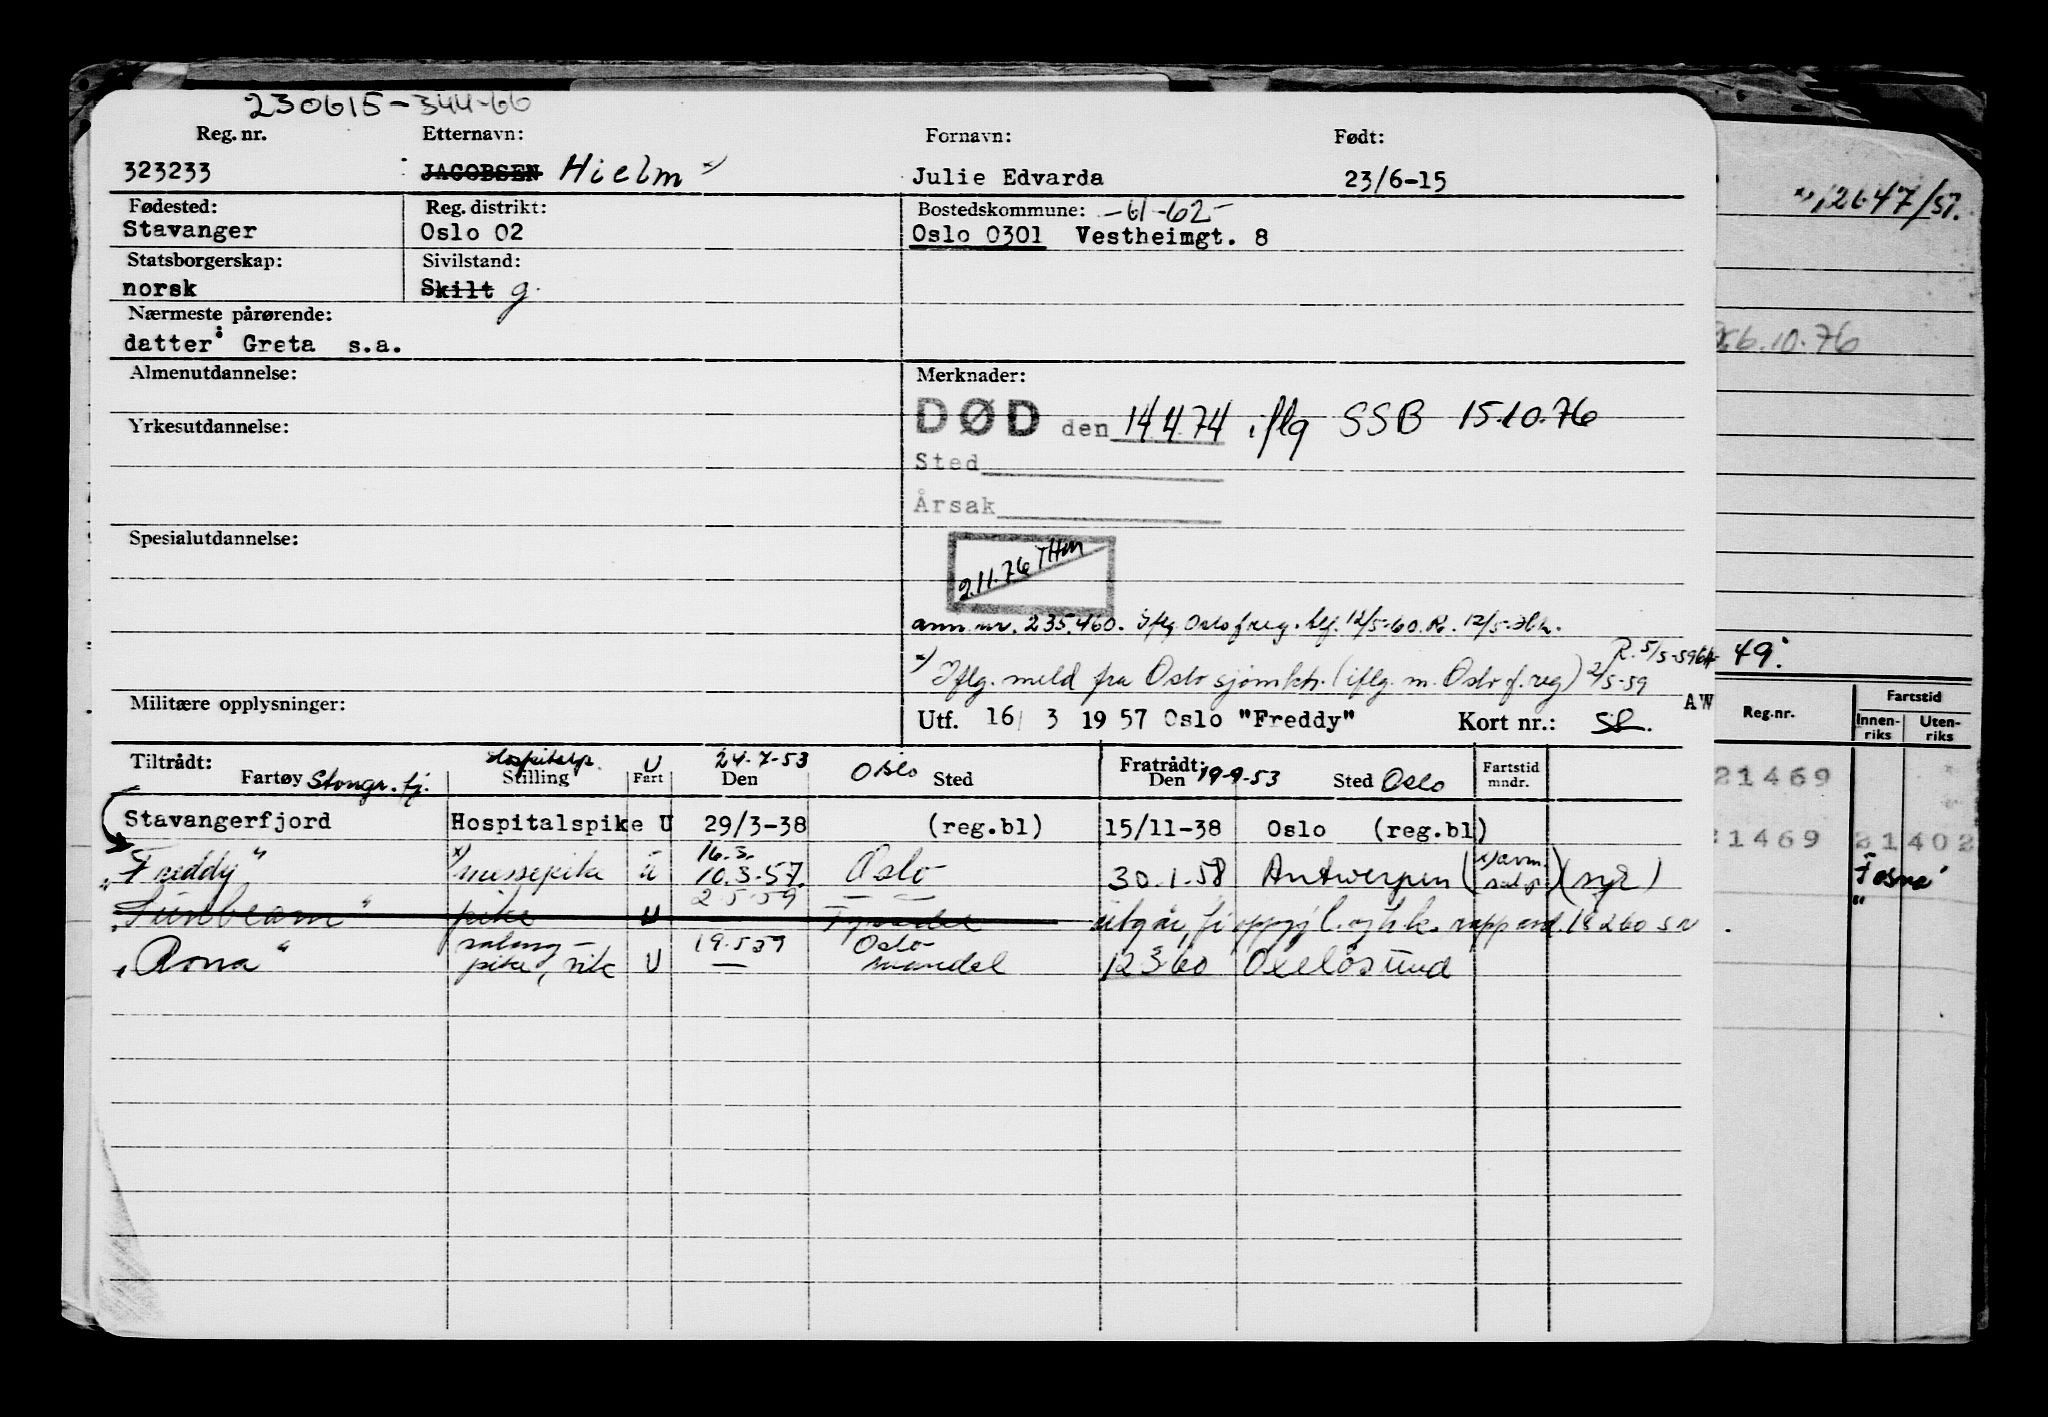 230615-344-66
Reg. nr. Etternavn: Fornavn: Født:
323233 JACOBSEN Hielm x) Julie Edvarda 23/6-15
Fødested: Reg. distrikt: Bostedskommune: -61-62-
Stavanger Oslo 02 Oslo 0301 Vestheimgt. 8
Statsborgerskap: Sivilstand:
norsk Skilt g.
Nærmeste pårørende:
datter: Greta s.a.
Almenutdannelse: Merknader:
DØD den 14 4 74 iflg SSB 15.10.76
Yrkesutdannelse:
Sted
Årsak
Spesialutdannelse:
2.11.76 THm
ann. nr. 235.460. Iflg Oslo f.reg. 12/5-60. R. 12/5-
R. 5/5-59
x) Iflg. meld fra Oslo sjømktr. (iflg. m. Oslo f. reg) 2/5-59
Militære opplysninger: AW
Utf. 16/ 3 19 57 Oslo "Freddy" Kort nr.:
Tiltrådt: Hospitalsp. U 24-7-53 Oslo Fratrådt: 19-9-53
Fartøy Stvngr.fj. Stilling Fart Den Sted Den Sted Oslo Fartstid mndr.
Stavangerfjord Hospitalspike U 29/3-38 (reg.bl) 15/11-38 Oslo (reg.bl)
16.3.
"Freddy" x) messepike u 10.3.57. Oslo 30.1.58 Antwerpen
2.5.59
"Sunbeam" pike U utgår, 18 2 60
"Rona" salong- U 19.5.59 Oslo
pike, Mandal 12 3 60 Oxelösund
x) 12647/57.
26.10.76
49:
Reg.nr. Fartstid
Innen-riks Uten-riks
21469
21469 21402
Fosna"
"